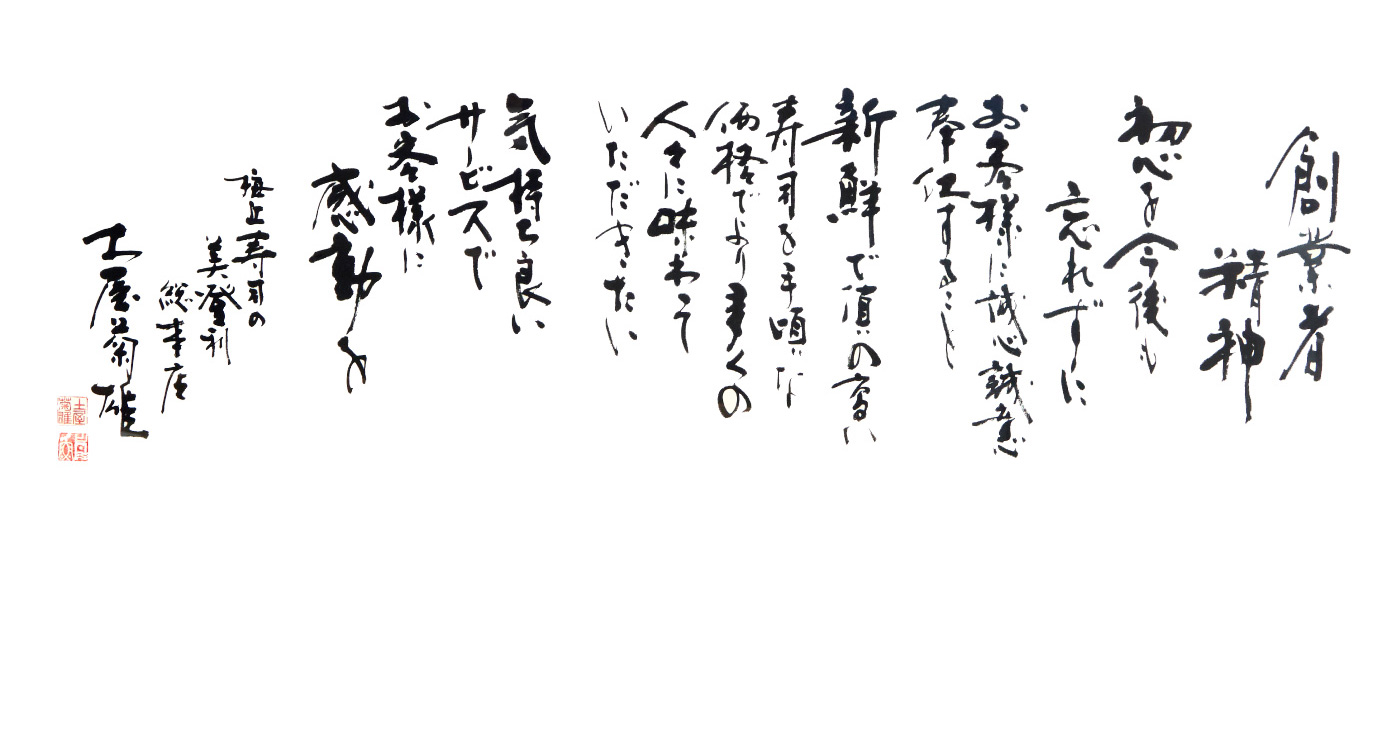 創業者
精神
初心を今後も
忘れずに
お客様に誠心誠意
奉仕すること
新鮮で質の高い
寿司を手頃な
価格でより多くの
人々に味わって
いただきたい
気持ち良い
サービスで
お客様に
感動を
梅丘寿司の
美登利
総本店
土屋菊雄
土屋
菊雄